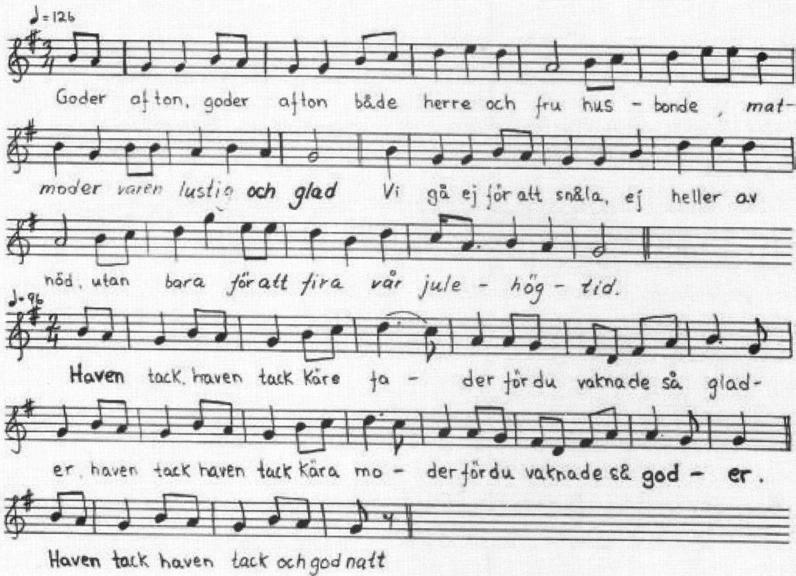 ♩=126
Goder afton, goder afton både herre och fru hus - bonde, mat-
moder varen lustig och glad Vi gå ej för att snåla, ej heller av
nöd, utan bara för att fira vår jule - hög - tid.
♩=96
Haven tack, haven tack Käre fa - der för du vaknade så glad-
er, haven tack haven tack kära mo - der för du vaknade så god - er.
Haven tack haven tack och god natt